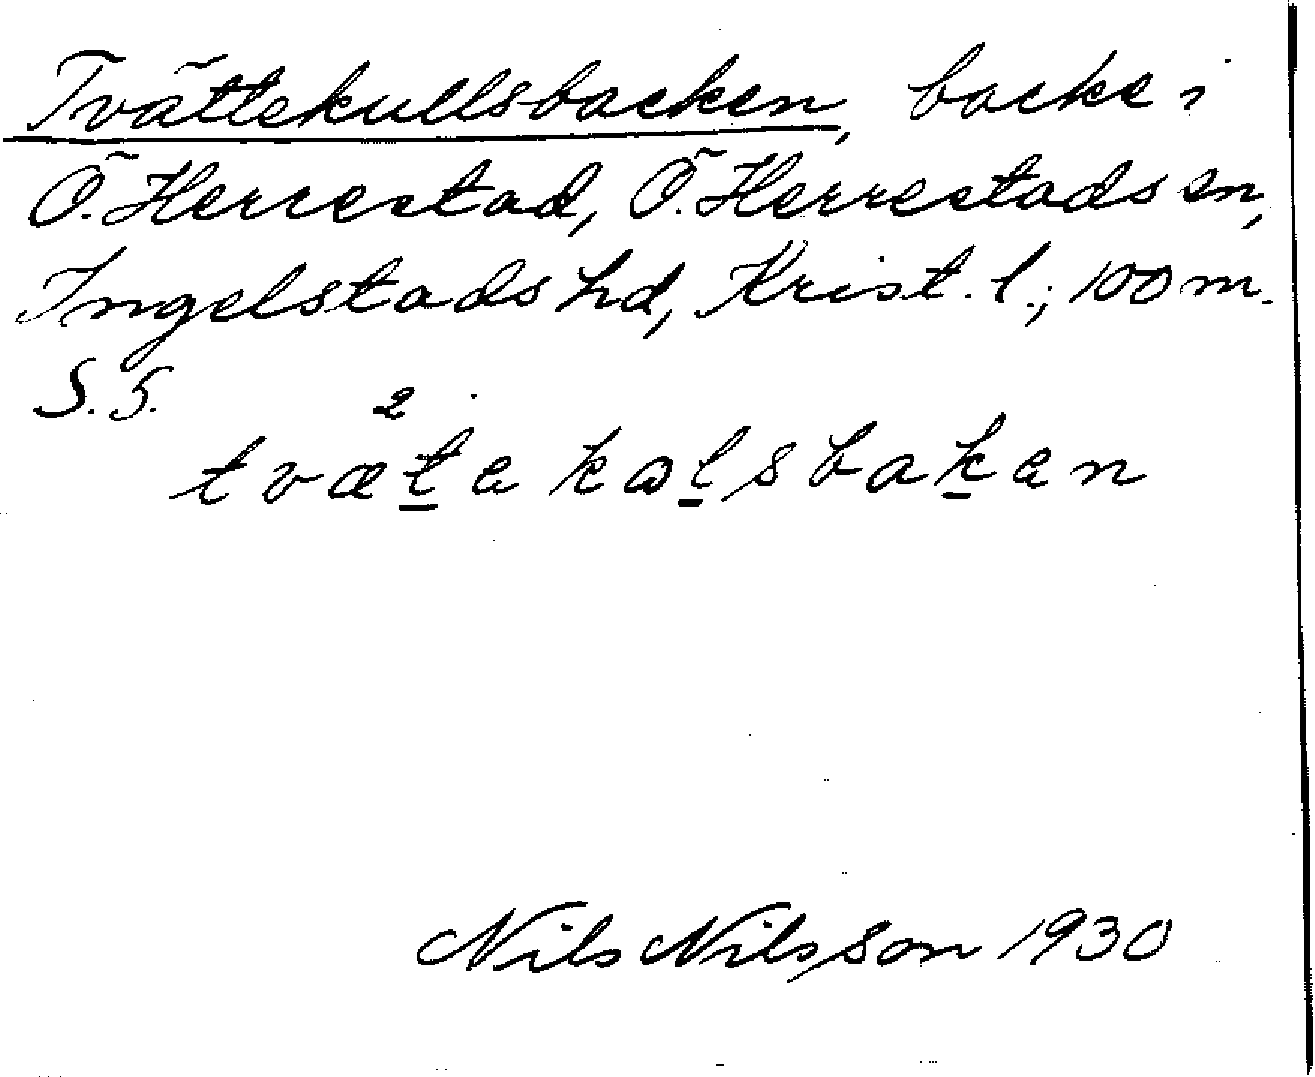 Tvättekullsbacken, backe i
Ö. Herrestad, Ö. Herrestads sn,
Ingelstads hd, Krist. l.; 100 m.
S. 5.
2
tvætakωlsbakan
Nils Nilsson 1930